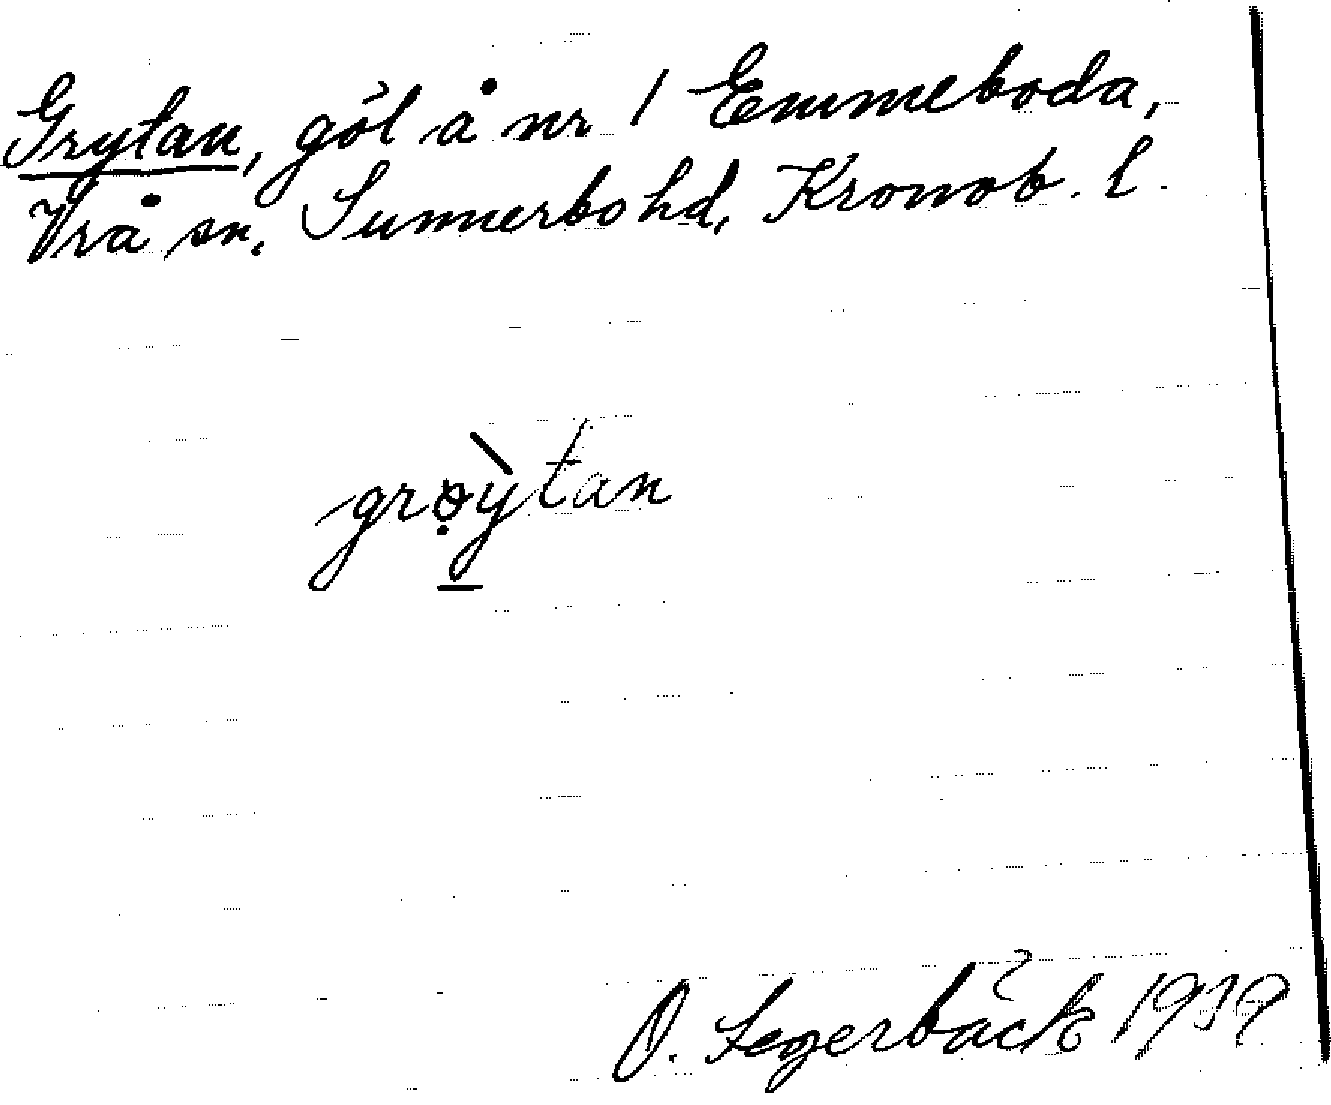 Grytan, göl å nr 1 Emmeboda,
Vrå sn. Sunnerbo hd, Kronob. l.
grọ̈ỳtan
O. Segerbäck 1939